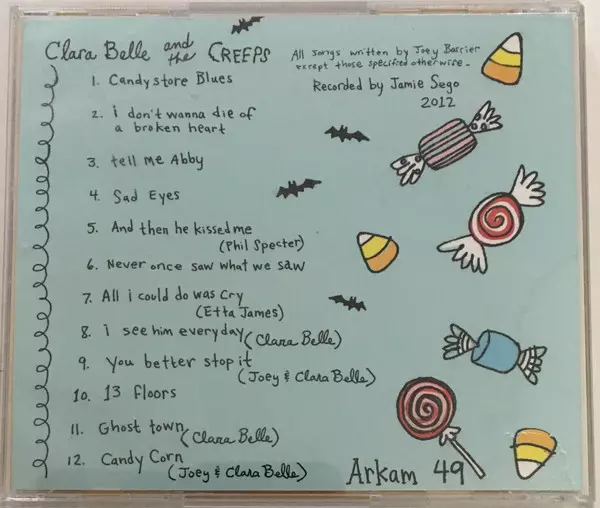 Clara Belle and the CREEPS
All songs written by Joey Barrier
except those specified otherwise.
Recorded by Jamie Sego
2012
1. Candystore Blues
2. i don't wanna die of
a broken heart
3. tell me Abby
4. Sad Eyes
5. And then he kissed me
(Phil Specter)
6. Never once saw what we saw
7. All i could do was Cry
(Etta James)
8. i see him everyday (Clara Belle)
9. You better stop it
(Joey & Clara Belle)
10. 13 floors
11. Ghost town
(Clara Belle)
12. Candy Corn
(Joey & Clara Belle)
Arkam 49